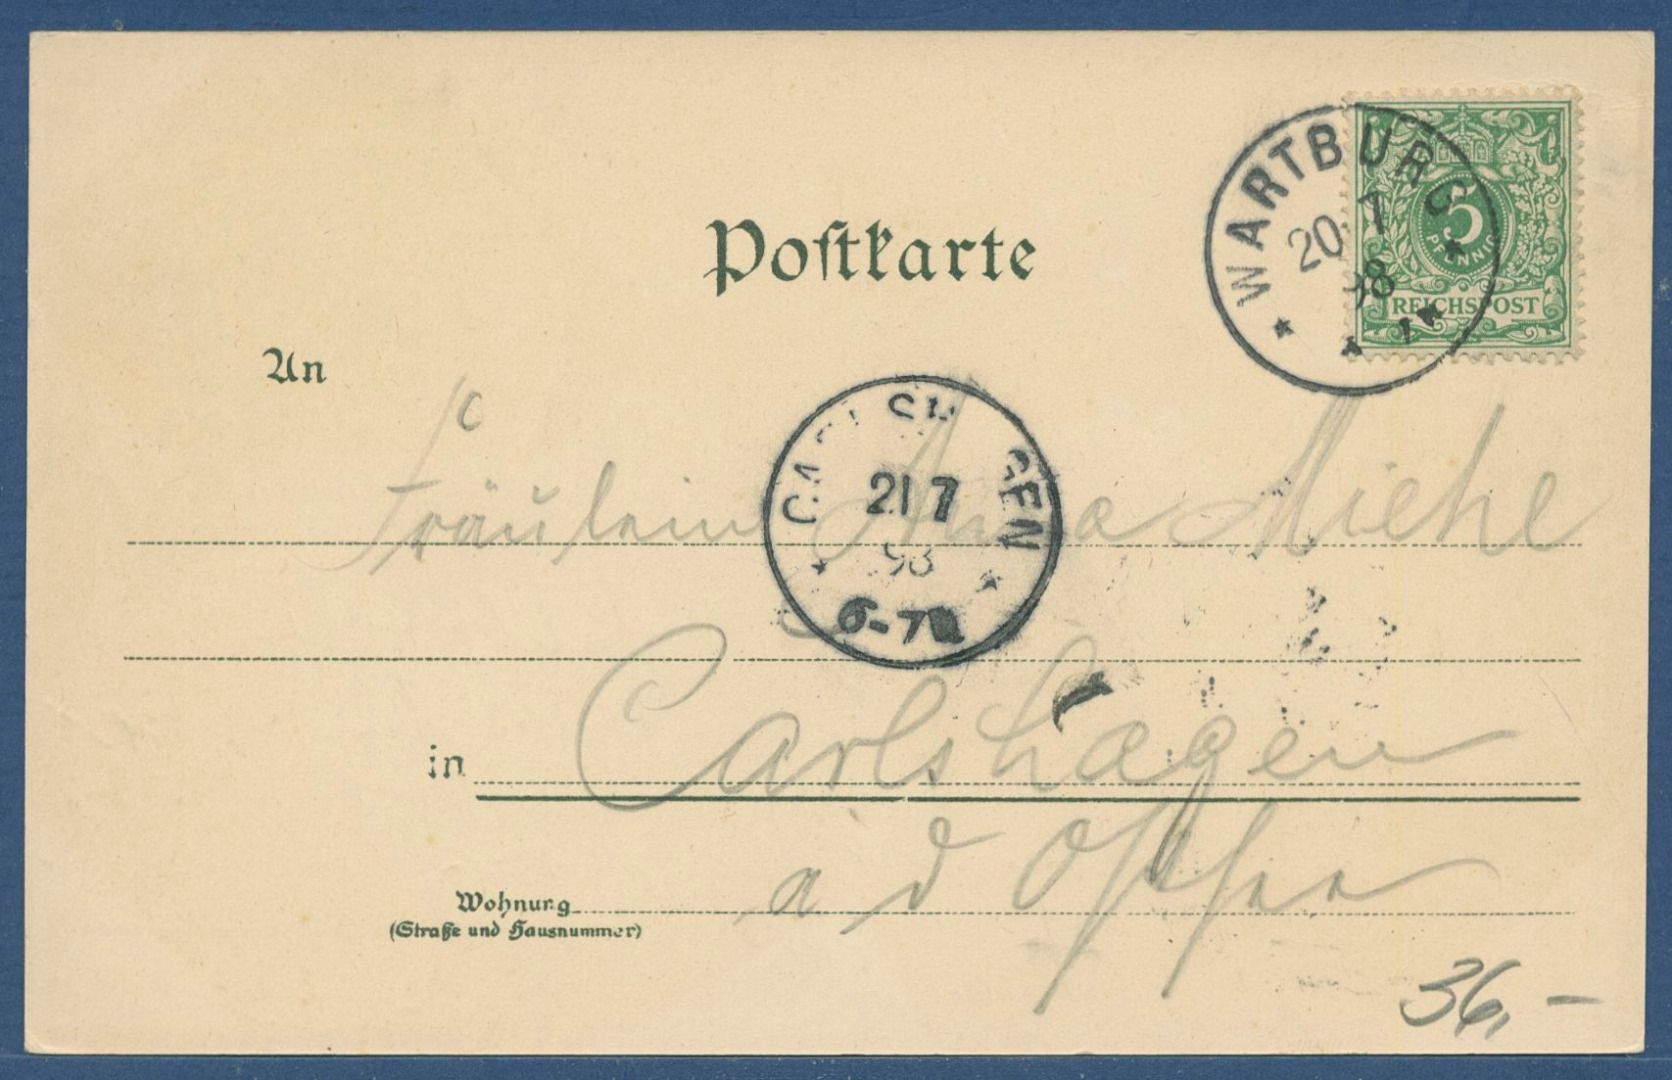 WARTBURG
20 7
98
5
PFENNIG
REICHSPOST
Postkarte
An
Fräulein Anna Miehe
21 7
98
6-7N
in Carlshagen
a d Ostsee
Wohnung
(Straße und Hausnummer)
36,-